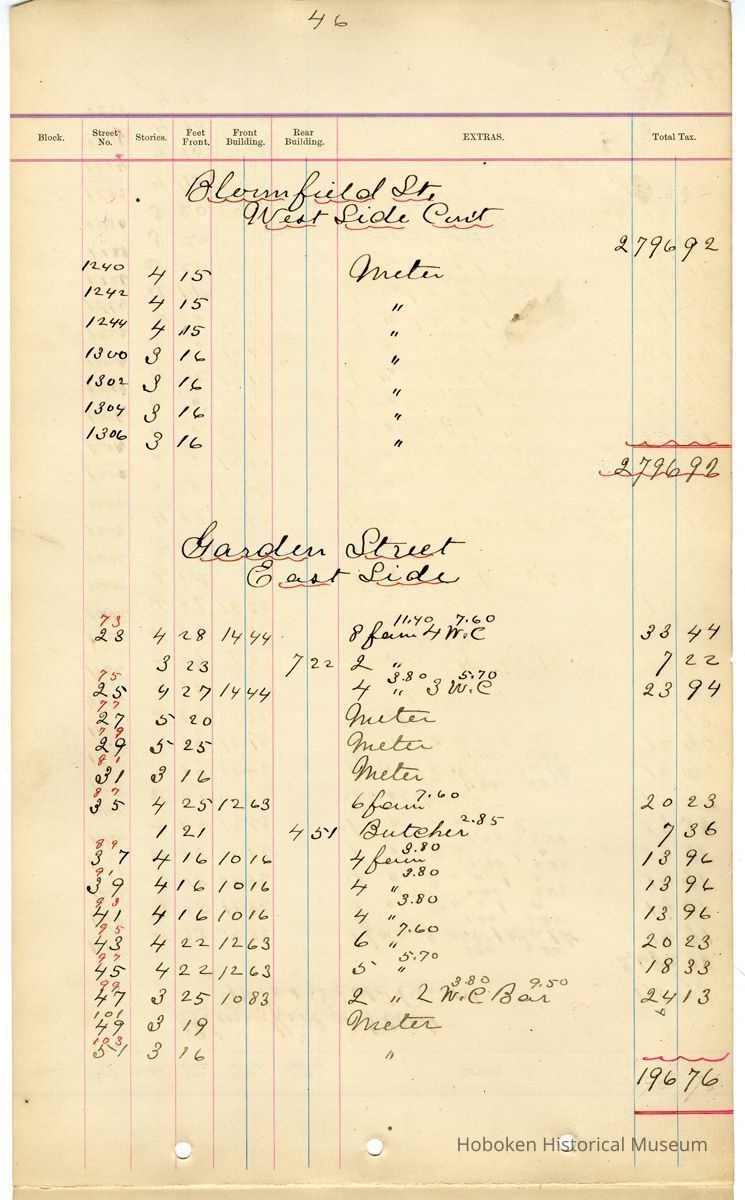 46
Block. Street No. Stories. Feet Front. Front Building. Rear Building. EXTRAS. Total Tax.
Bloomfield St.
West Side Cont
2796 92
1240 4 15 Meter
1242 4 15 "
1244 4 15 "
1300 3 16 "
1302 3 16 "
1304 3 16 "
1306 3 16 "
2796 92
Garden Street
East Side
73 11.40 7.60
23 4 28 14 44 8 fam 4 W.C 33 44
3 23 7 22 2 " 7 22
75 3.80 5.70
25 4 27 14 44 4 " 3 W.C 23 94
77
27 5 20 Meter
79
29 5 25 Meter
81
31 3 16 Meter
87 7.60
35 4 25 12 63 6 fam 20 23
1 21 4 51 Butcher 2.85 7 36
89 3.80
37 4 16 10 16 4 fam 13 96
91 3.80
39 4 16 10 16 4 " 13 96
93 3.80
41 4 16 10 16 4 " 13 96
95 7.60
43 4 22 12 63 6 " 20 23
97 5.70
45 4 22 12 63 5 " 18 33
99 3.80 9.50
47 3 25 10 83 2 " 2 W.C Bar 24 13
101
49 3 19 Meter
103
51 3 16 "
196 76
Hoboken Historical Museum